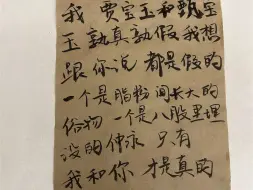 我 贾宝玉和甄宝
玉孰真孰假 我想
跟你说 都是假的
一个是脂粉间长大的
俗物 一个是八股里埋
没的仲永 只有
我和你 才是真的